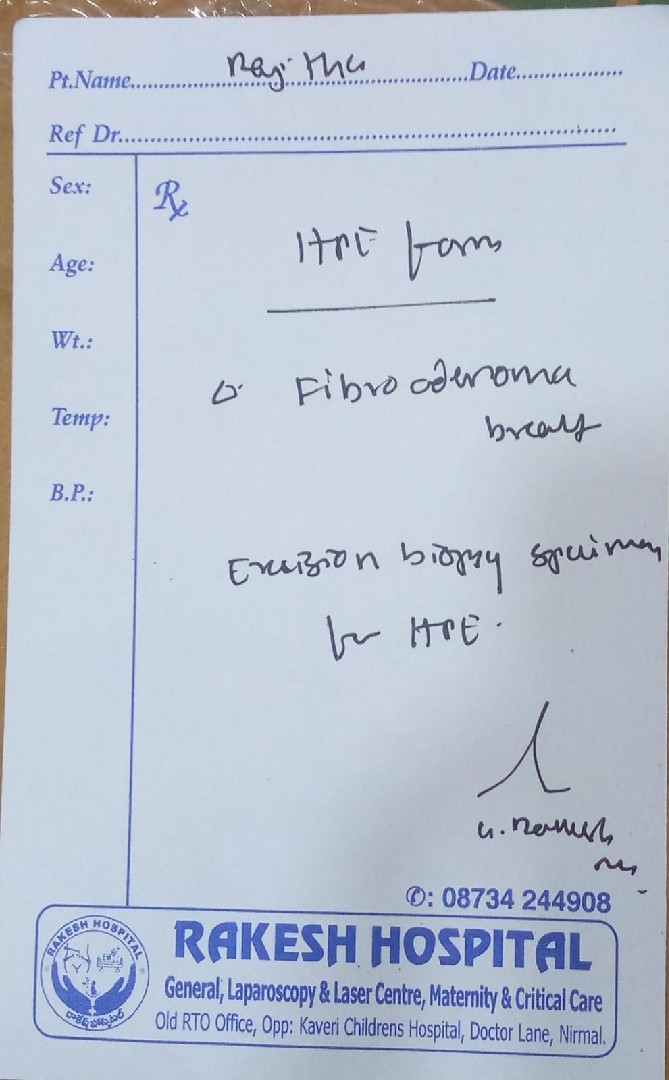 Pt.Name.......... Rajitha ..........Date..........
Ref Dr..........
Sex:
Rx
HPE form
Age:
Wt.:
Δ: Fibroadenoma
breast
Temp:
B.P.:
Excision biopsy specimen
for HPE.
✆: 08734 244908
RAKESH HOSPITAL
RAKESH HOSPITAL
General, Laparoscopy & Laser Centre, Maternity & Critical Care
Old RTO Office, Opp: Kaveri Childrens Hospital, Doctor Lane, Nirmal.